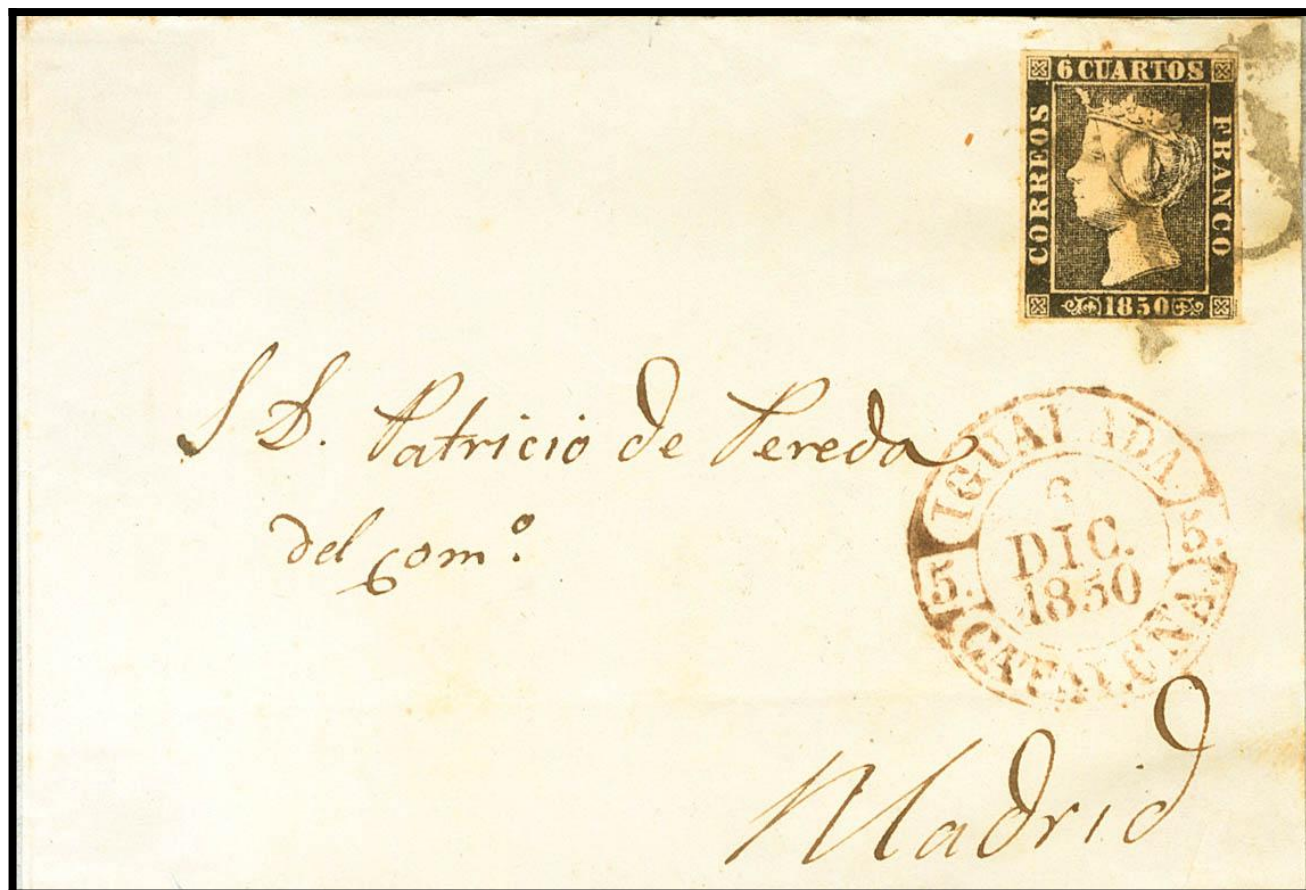 6 CUARTOS
CORREOS
FRANCO
1850
S D. Patricio de Pereda
del comº
IGUALADA
5.
DIC.
1850
5.
CATALUÑA
Madrid